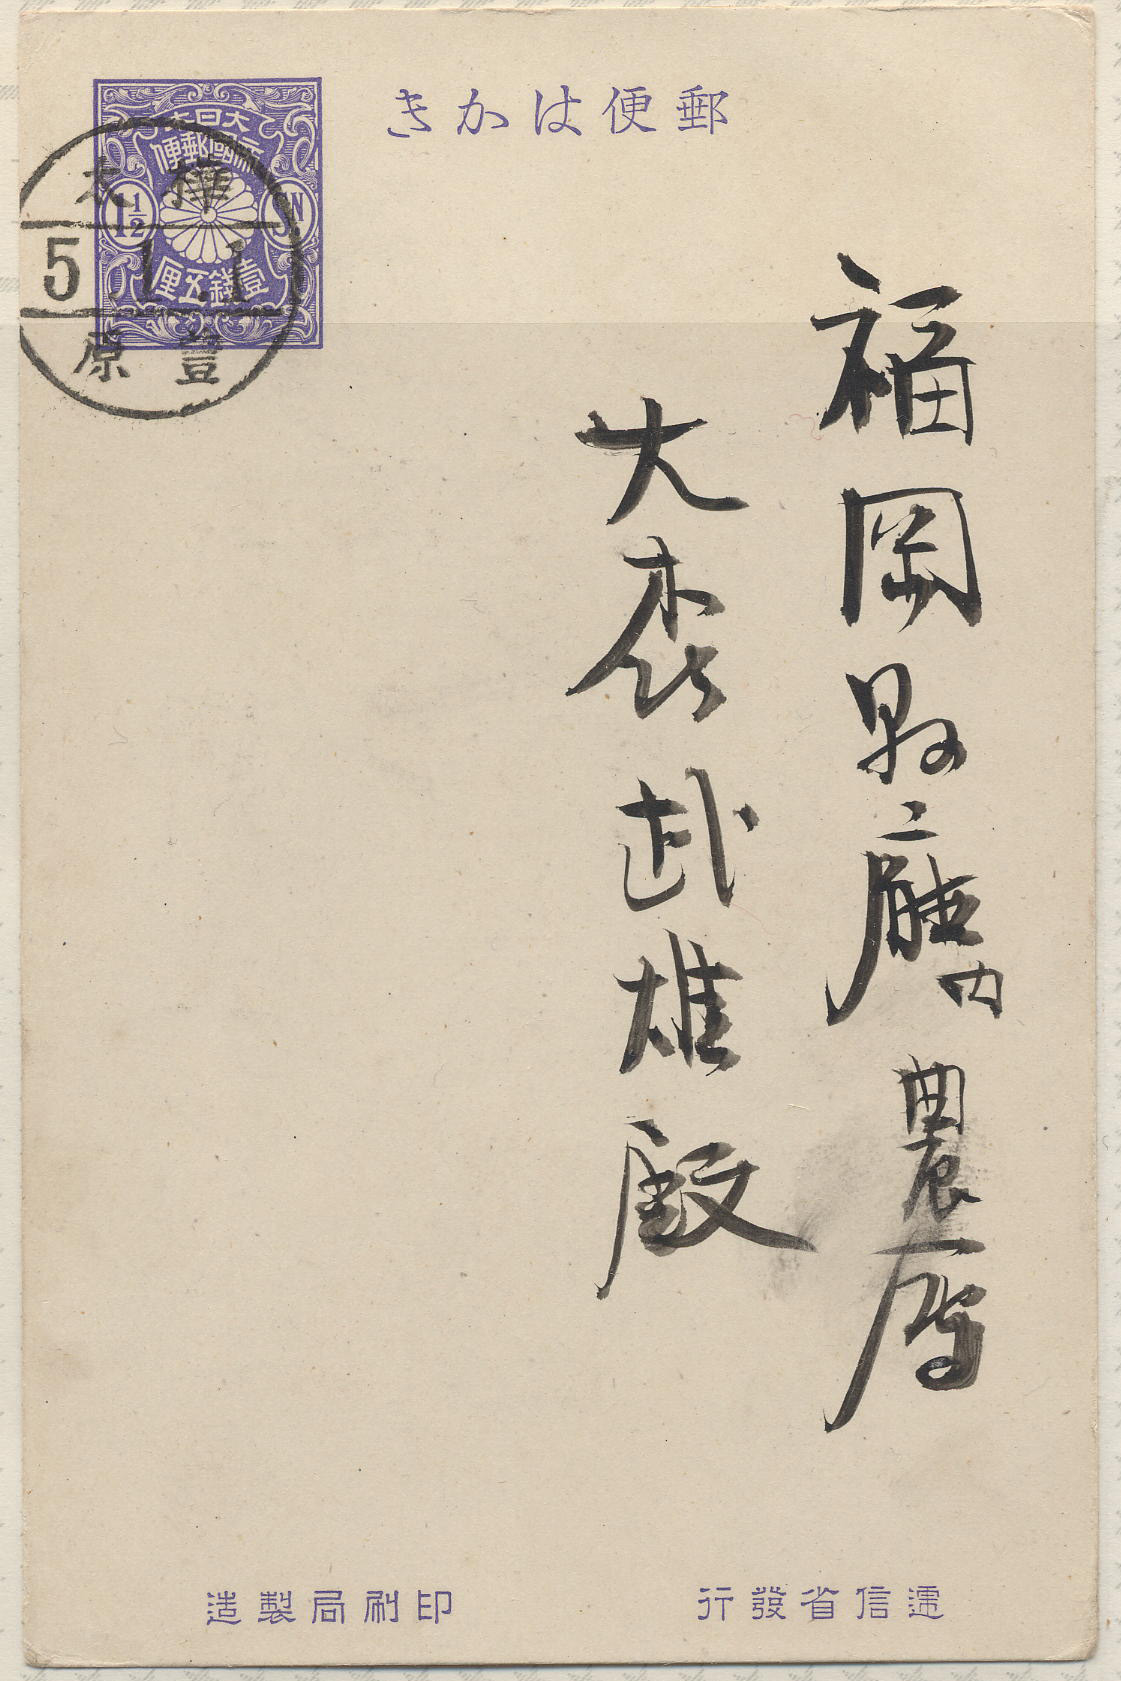 郵便はかき
大日本
帝國郵便
1½
SN
壹錢五厘
樺太
5.1.1
豊原
福岡縣廳内農務
大森武雄殿
逓信省發行
印刷局製造